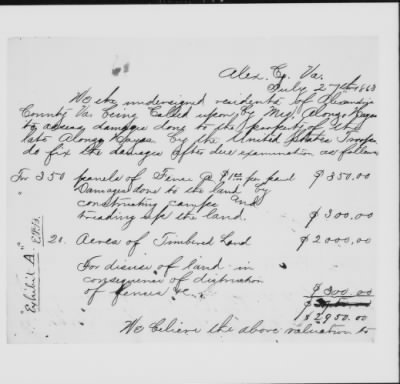 Alex. Co. Va.
July 27th 1863
We the undersigned residents of Alexandria
County Va. being called upon by Mrs. Alonzo Hayes
to assess damage done to the property of the
late Alonzo Hayes by the United States Troops
do fix the damages after due examination as follows
For 350 panels of Fence @ $1.00 per panel $350.00
" Damages done to the land by
constructing camps and
treading up the land. $300.00
" 20. Acres of Timbered Land $2000.00
For disuse of land in
consequence of destruction
of fences &c. $300.00
$2950.00
We believe the above valuation to
"Exhibit A" E.P.S.